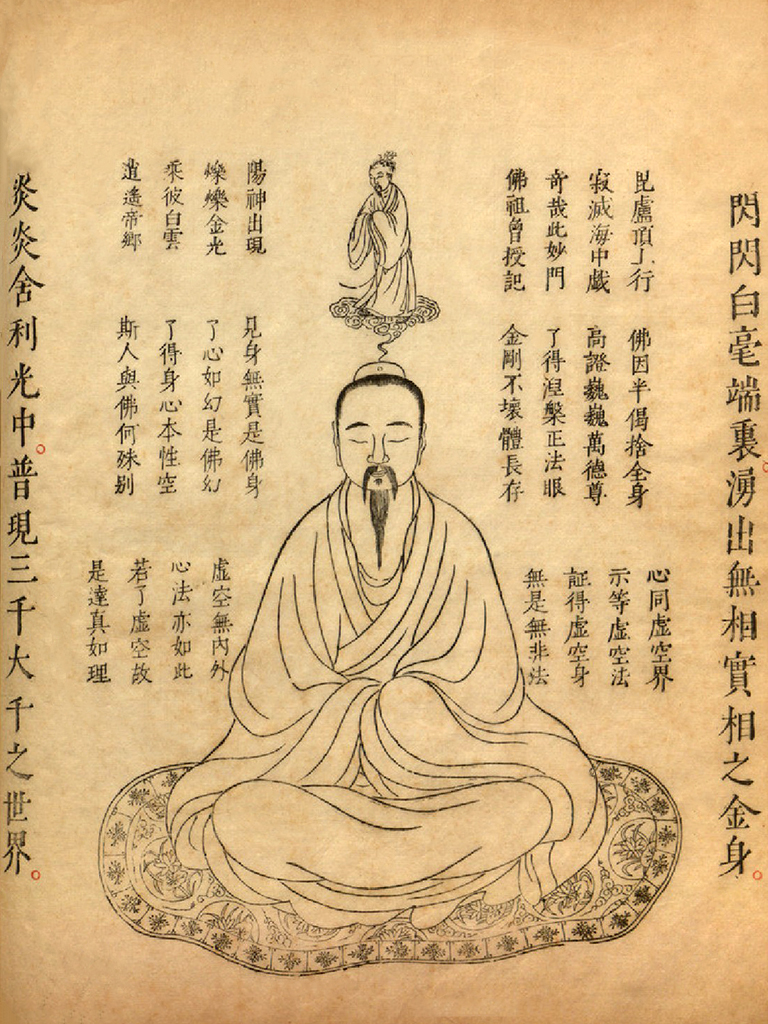 閃閃白毫端裏湧出無相實相之金身。
毘盧頂上行
寂滅海中戲
奇哉此妙門
佛祖曾授記
佛因半偈捨全身
高證巍巍萬德尊
了得涅槃正法眼
金剛不壞體長存
心同虛空界
示等虛空法
証得虛空身
無是無非法
陽神出現
爍爍金光
乘彼白雲
逍遙帝鄉
見身無實是佛身
了心如幻是佛幻
了得身心本性空
斯人與佛何殊別
虛空無內外
心法亦如此
若了虛空故
是達真如理
炎炎舍利光中。普現三千大千之世界。